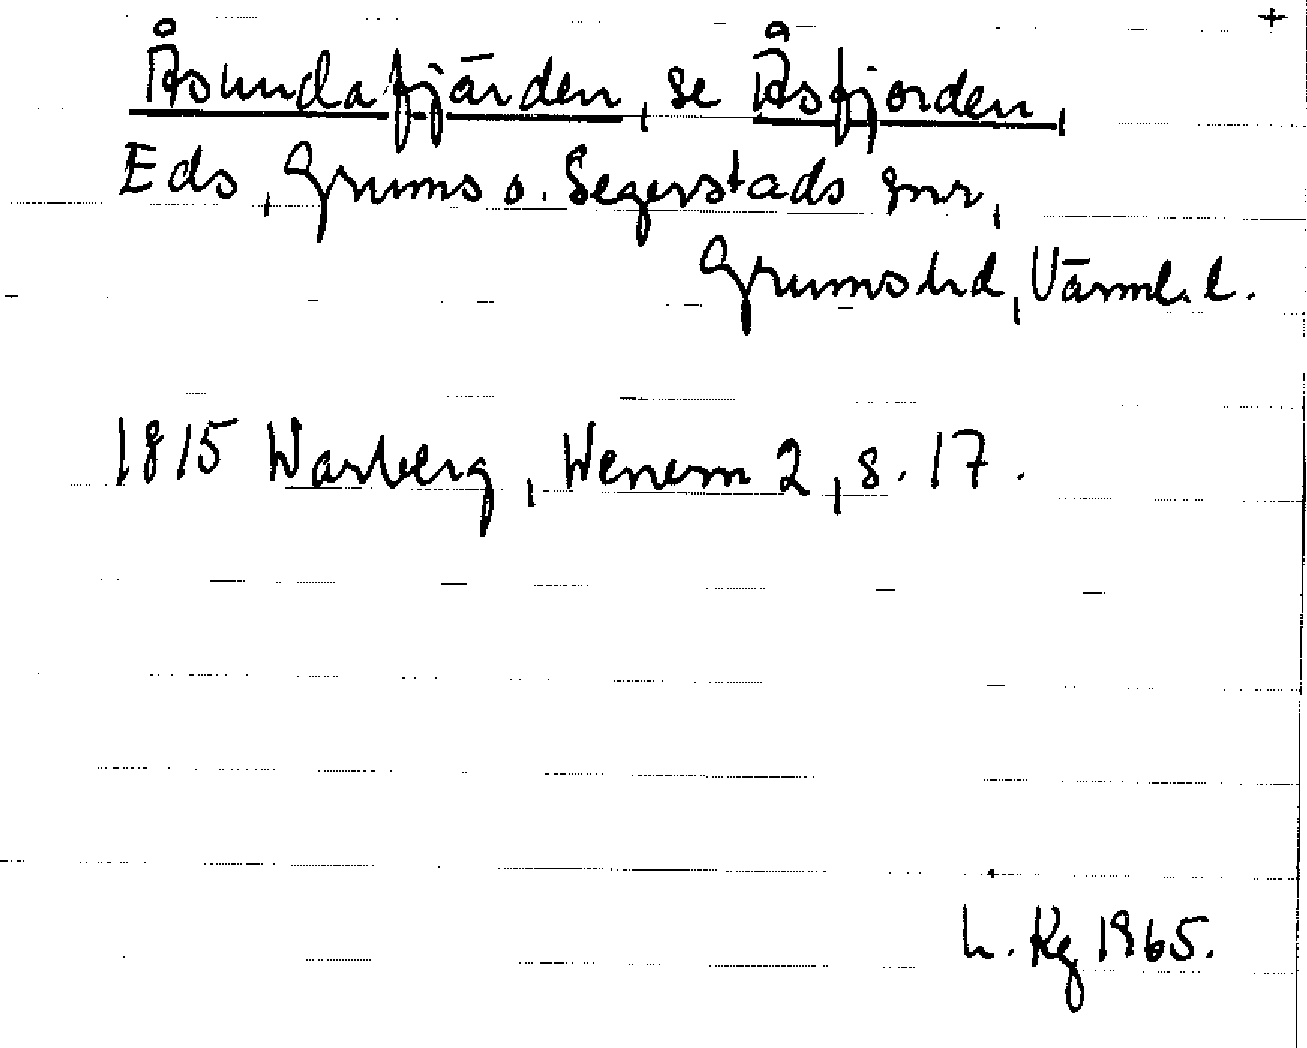 +
Åsundafjärden, se Åsfjorden,
Eds, Grums o. Segerstads snr,
Grums hd, Värml. l.
1815 Warberg, Wenern 2, s. 17.
L. Kg 1965.